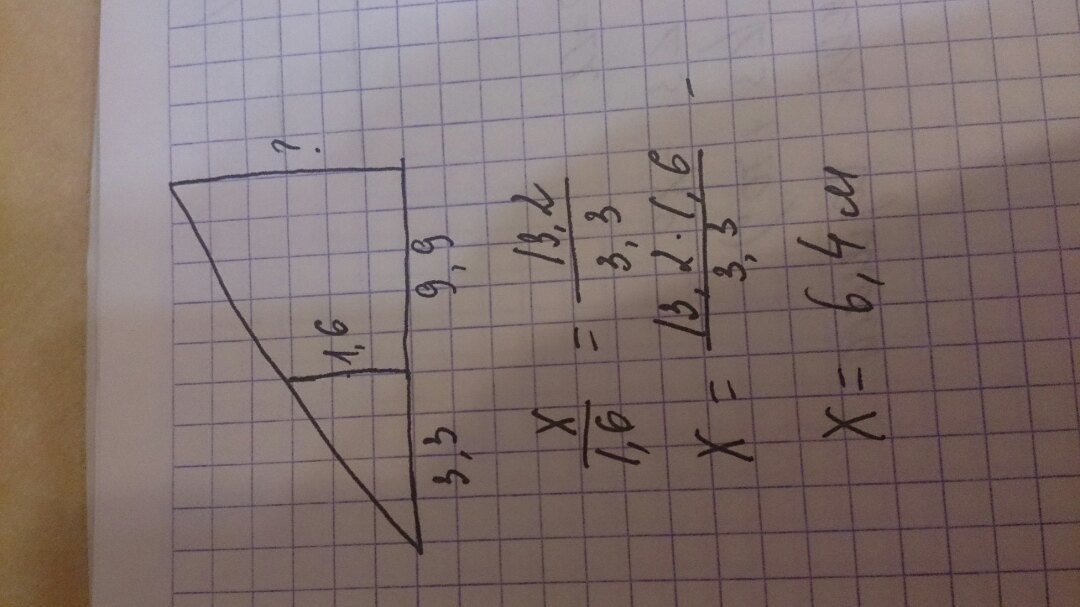 ?
1,6
3,3 9,9
x/1,6 = 13,2/3,3
x = 13,2·1,6/3,3 -
x = 6,4 м